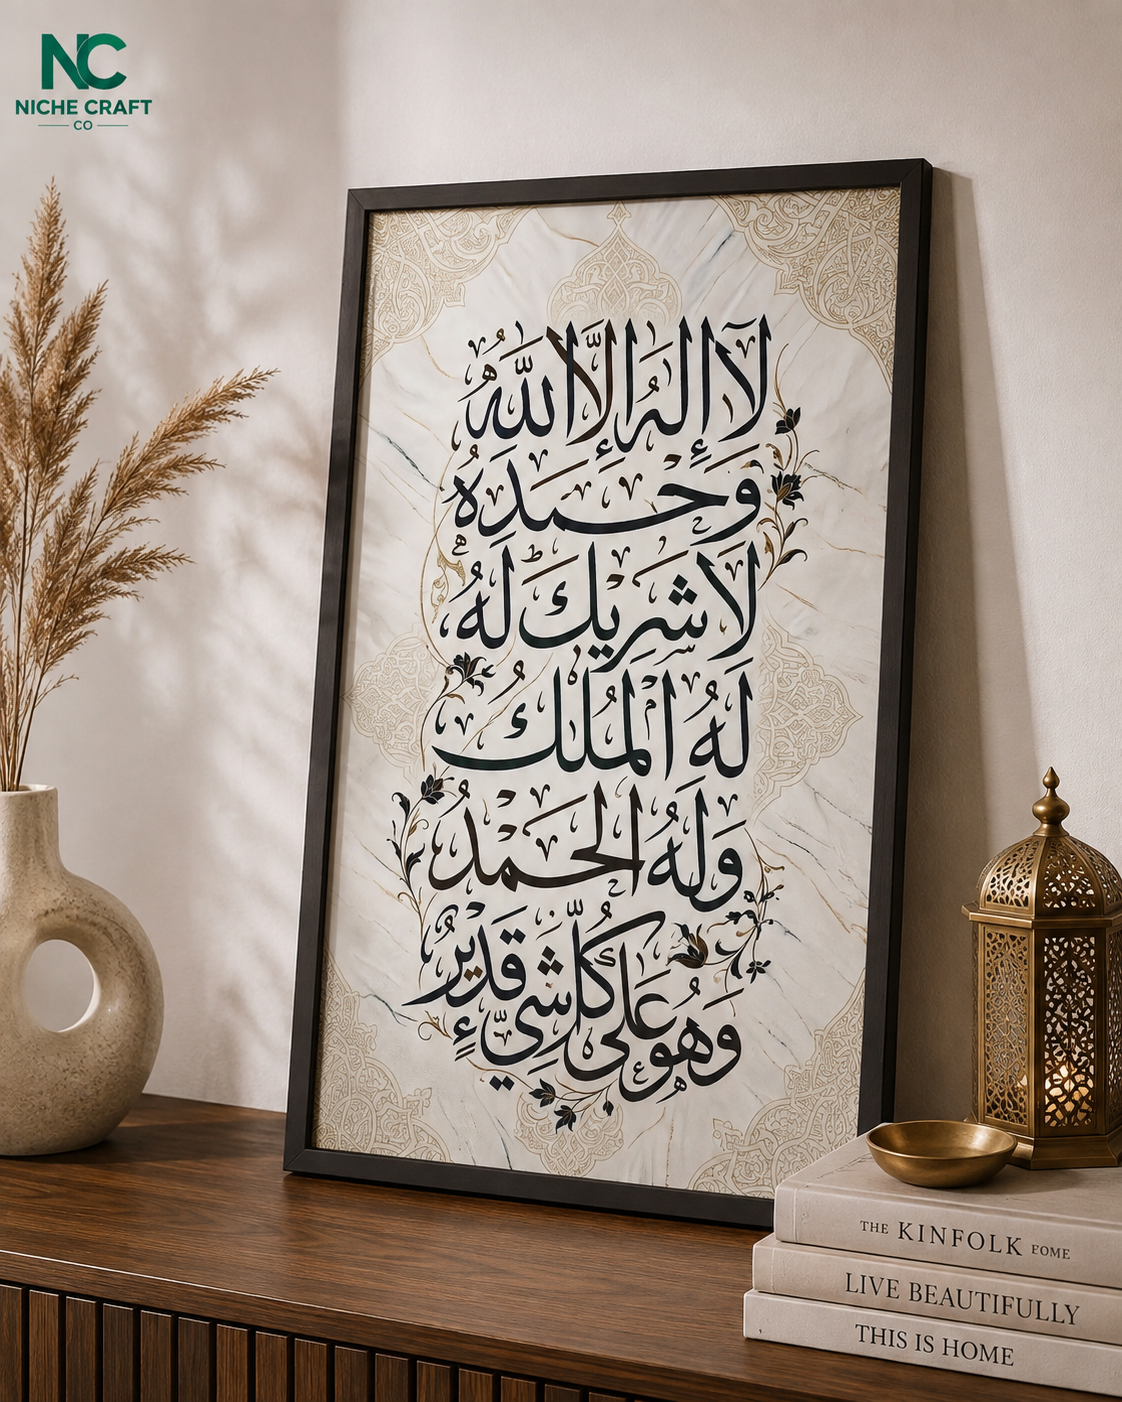 NC
NICHE CRAFT
CO
لَا إِلٰهَ إِلَّا اللّٰهُ
وَحْمَدَهُ
لَا شَرِيكَ لَهُ
لَهُ الْمُلْكُ
وَلَهُ الْحَمْدُ
وَهُوَ عَلَى كُلِّ شَيْءٍ قَدِيْرٌ
THE KINFOLK FOME
LIVE BEAUTIFULLY
THIS IS HOME